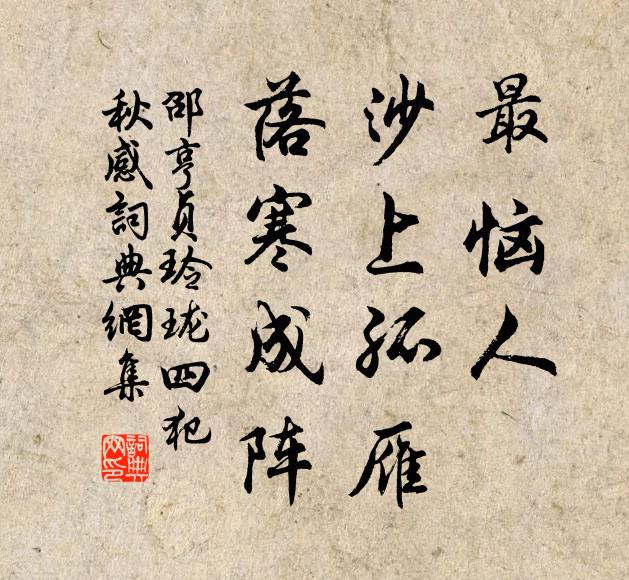 最恼人
沙上孤雁
落寒成阵
邵亨贞玲珑四犯
秋感詞典網集
詞典网印